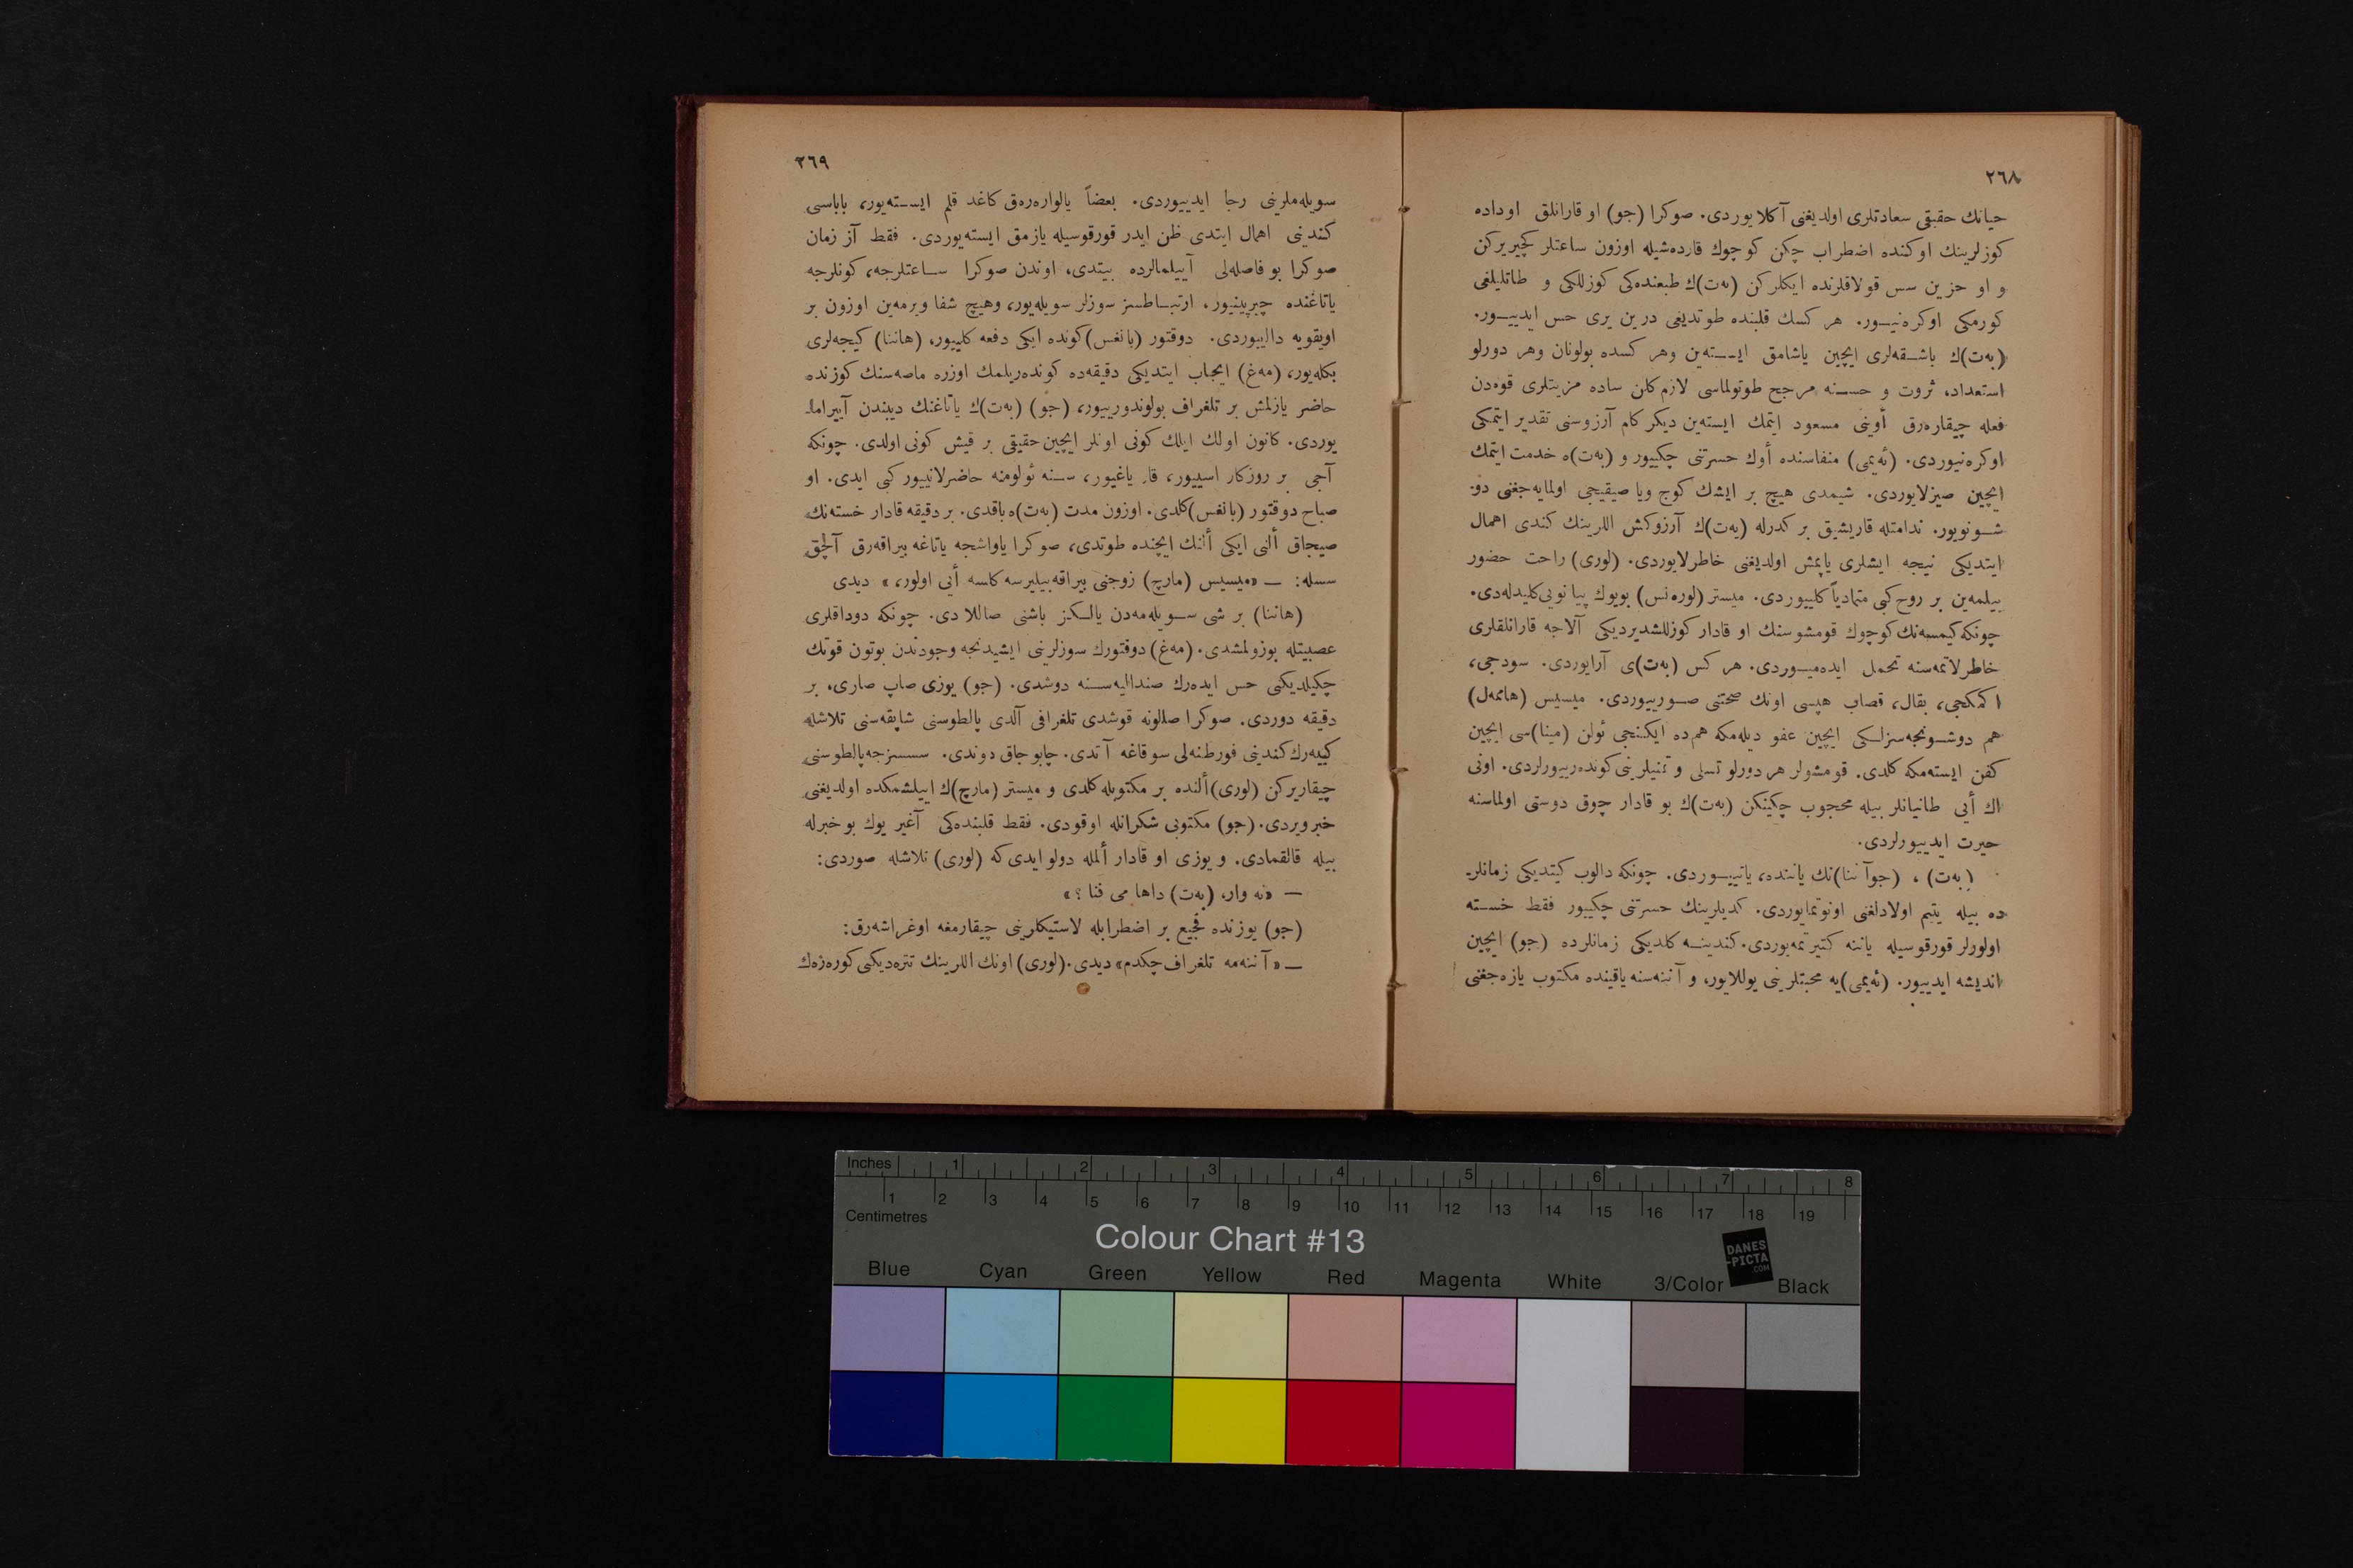 ٢٦٨
حیاتك حقیقی سعادتلری اولدیغنی آكلایوردی. صوكرا (جو) او قارانلق اوداده
كوزلرینك اوكنده اضطراب چكن كوچوك قارده‌شیله اوزون ساعتلر كچیریركن
و او حزین سس قولاقلرنده ایكلركن (به‌ت)ك طبعنده‌كی كوزللكی و طاتلیلغی
كورمكی اوكره‌نیور. هر كسك قلبنده طوتدیغی درین یری حس ایدییور.
(به‌ت)ك باشقه‌لری ایچین یاشامق ایسته‌ین وهر كسده بولونان وهر دورلو
استعداد، ثروت و حسنه مرجح طوتولماسی لازم كلن ساده مزیتلری قوه‌دن
فعله چیقاره‌رق أوینی مسعود ایتمك ایسته‌ین دیكر كام آرزوسنی تقدیر ایتمكی
اوكره‌نیوردی. (ئه‌یمی) منفاسنده أوك حسرتنی چكییور و (به‌ت)ه خدمت ایتمك
ایچین صیزلایوردی. شیمدی هیچ بر ایشك كوج ویا صیقیجی اولمایه‌جغنی دو-
شونویور. ندامتله قاریشیق بر كدرله (به‌ت)ك آرزوكش اللرینك كندی اهمال
ایتدیكی نیجه ایشلری یاپمش اولدیغنی خاطرلایوردی. (لوری) راحت حضور
بیلمه‌ین بر روح كبی متمادیاً كلییوردی. میستر (لوره‌نس) بویوك پیانویی كلیدله‌دی.
چونكه كیمسه‌نك كوچوك قومشوسنك او قادار كوزللشدیردیكی آلاجه قارانلقلری
خاطرلاتمه‌سنه تحمل ایده‌میوردی. هر كس (به‌ت)ی آرایوردی. سودجی،
اكمكجی، بقال، قصاب هپسی اونك صحتنی صورییوردی. میسیس (هاتمه‌ل)
هم دوشونجه‌سزلكی ایچین عفو دیله‌مكه هم‌ده ایكنجی ئولن (مینا)سی ایچین
كفن ایسته‌مكه كلدی. قومشولر هر دورلو تسلی و تمنیلرینی كونده‌رییورلردی. اونی
اك أیی طانیانلر بیله محجوب چكینكن (به‌ت)ك بو قادار چوق دوستی اولماسنه
حیرت ایدییورلردی.
(به‌ت) ، (جوآننا)نك یاننده، یاتییوردی. چونكه دالوب كیتدیكی زمانلر-
ده بیله یتیم اولادلغنی اونوتمایوردی. كدیلرینك حسرتنی چكییور فقط خسته
اولورلر قورقوسیله یاننه كتیرتمه‌یوردی. كندینه كلدیكی زمانلرده (جو) ایچین
اندیشه ایدییور. (ئه‌یمی)یه محبتلرینی یوللایور، و آننه‌سنه یاقینده مكتوب یازه‌جغنی
٢٦٩
سویله‌ملرینی رجا ایدییوردی. بعضاً یالواره‌ره‌ق كاغد قلم ایسته‌یور، باباسی
كندینی اهمال ایتدی ظن ایدر قورقوسیله یازمق ایسته‌یوردی. فقط آز زمان
صوكرا بو فاصله‌لی آییلمالرده بیتدی، اوندن صوكرا ساعتلرجه، كونلرجه
یاتاغنده چیرپینیور، ارتباطسز سوزلر سویله‌یور، وهیچ شفا ویرمه‌ین اوزون بر
اویقویه دالییوردی. دوقتور (بانغس) كونده ایكی دفعه كلییور، (هاننا) كیجه‌لری
بكله‌یور، (مه‌غ) ایجاب ایتدیكی دقیقه‌ده كونده‌ریلمك اوزره ماصه‌سنك كوزنده
حاضر یازلمش بر تلغراف بولوندورییور، (جو) (به‌ت)ك یاتاغنك دیبندن آییرامـ
یوردی. كانون اولك ایلك كونی اونلر ایچین حقیقی بر قیش كونی اولدی. چونكه
آجی بر روزكار اسییور، قار یاغیور، سنه ئولومنه حاضرلانییور كبی ایدی. او
صباح دوقتور (بانغس) كلدی. اوزون مدت (به‌ت)ه باقدی. بر دقیقه قادار خسته‌نك
صیجاق ألنی ایكی ألنك ایچنده طوتدی، صوكرا یاواشجه یاتاغه بیراقه‌رق آلچق
سسله: — «میسیس (مارچ) زوجنی بیراقه‌بیلیرسه كلسه أیی اولور،» دیدی
(هاننا) بر شی سویله‌مه‌دن یالكز باشنی صاللادی. چونكه دوداقلری
عصبیتله بوزولمشدی. (مه‌غ) دوقتورك سوزلرینی ایشیدنجه وجودندن بوتون قوتك
چكیلدیكنی حس ایده‌رك صندالیه‌سنه دوشدی. (جو) یوزی صاپ صاری، بر
دقیقه دوردی. صوكرا صالونه قوشدی تلغرافی آلدی پالطوسنی شاپقه‌سنی تلاشله
كییه‌رك كندینی فورطنه‌لی سوقاغه آتدی. چابوجاق دوندی. سسسزجه پالطوسنی
چیقاریركن (لوری) ألنده بر مكتوبله كلدی و میستر (مارچ)ك اییلشمكده اولدیغنی
خبر ویردی. (جو) مكتوبی شكرانله اوقودی. فقط قلبنده‌كی آغیر یوك بو خبرله
بیله قالقمادی. و یوزی او قادار ألمله دولو ایدی كه (لوری) تلاشله صوردی:
— «نه وار، (به‌ت) داها می فنا ؟»
(جو) یوزنده فجیع بر اضطرابله لاستیكلرینی چیقارمغه اوغراشه‌رق:
— «آننه‌مه تلغراف چكدم» دیدی. (لوری) اونك اللرینك تتره‌دیكنی كوره‌ره‌ك
Inches 1 2 3 4 5 6 7 8
1 2 3 4 5 6 7 8 9 10 11 12 13 14 15 16 17 18 19
Centimetres
Colour Chart #13
DANES
-PICTA
.COM
Blue Cyan Green Yellow Red Magenta White 3/Color Black